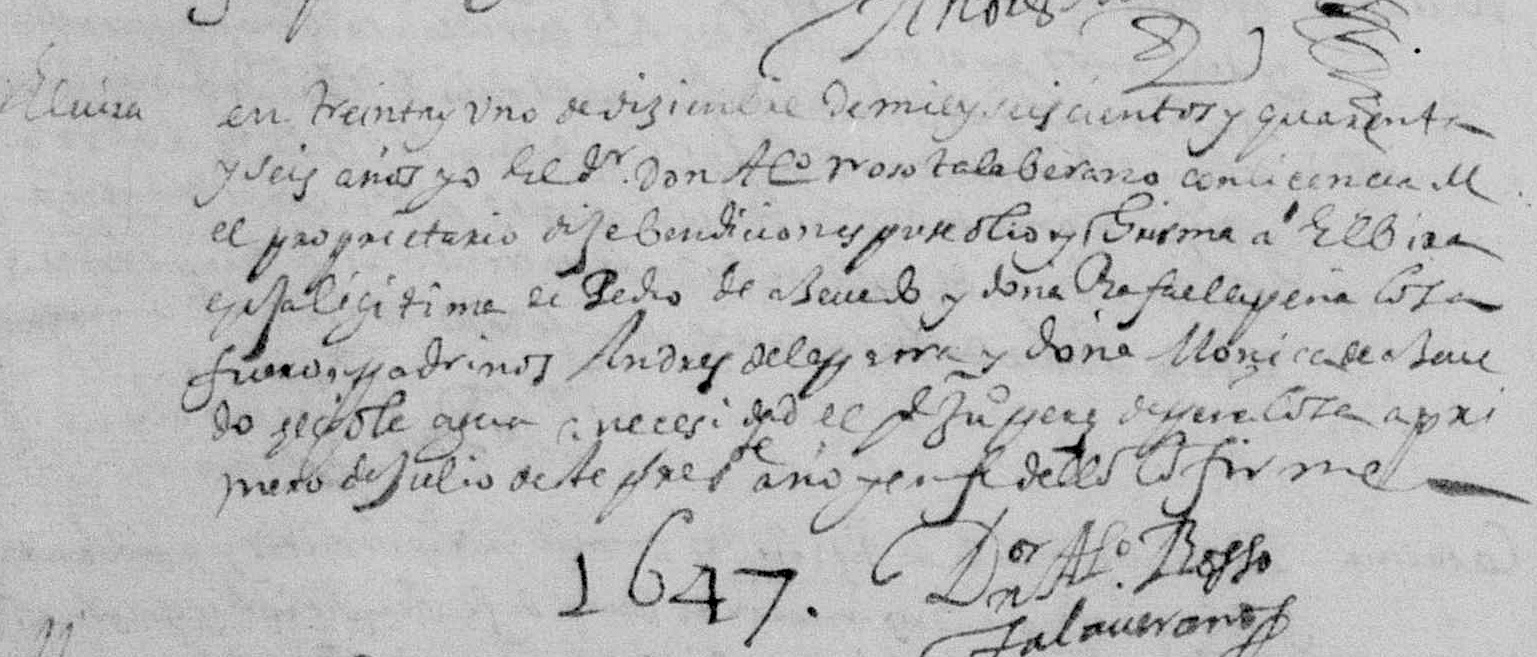 Eluira en treinta y vno de diziembre de mil y seiscientos y quarenta
y seis años yo el Dr. Don Alo rroso talaberano con licencia del
el proprietario dije bendiciones puse olio y Chrisma a Elbira
yja ligitima de Pedro de asevedo y doña Rafaela peña losa
fueron padrinos Andres de la parra y doña Monica de aseve
do hechole agua a necesidad el pe Juo perez de peña losa a pri
mero de Julio deste prete año y en fe dello lo firme
1647. Dor Dn Alo. Rosso
Talauerano